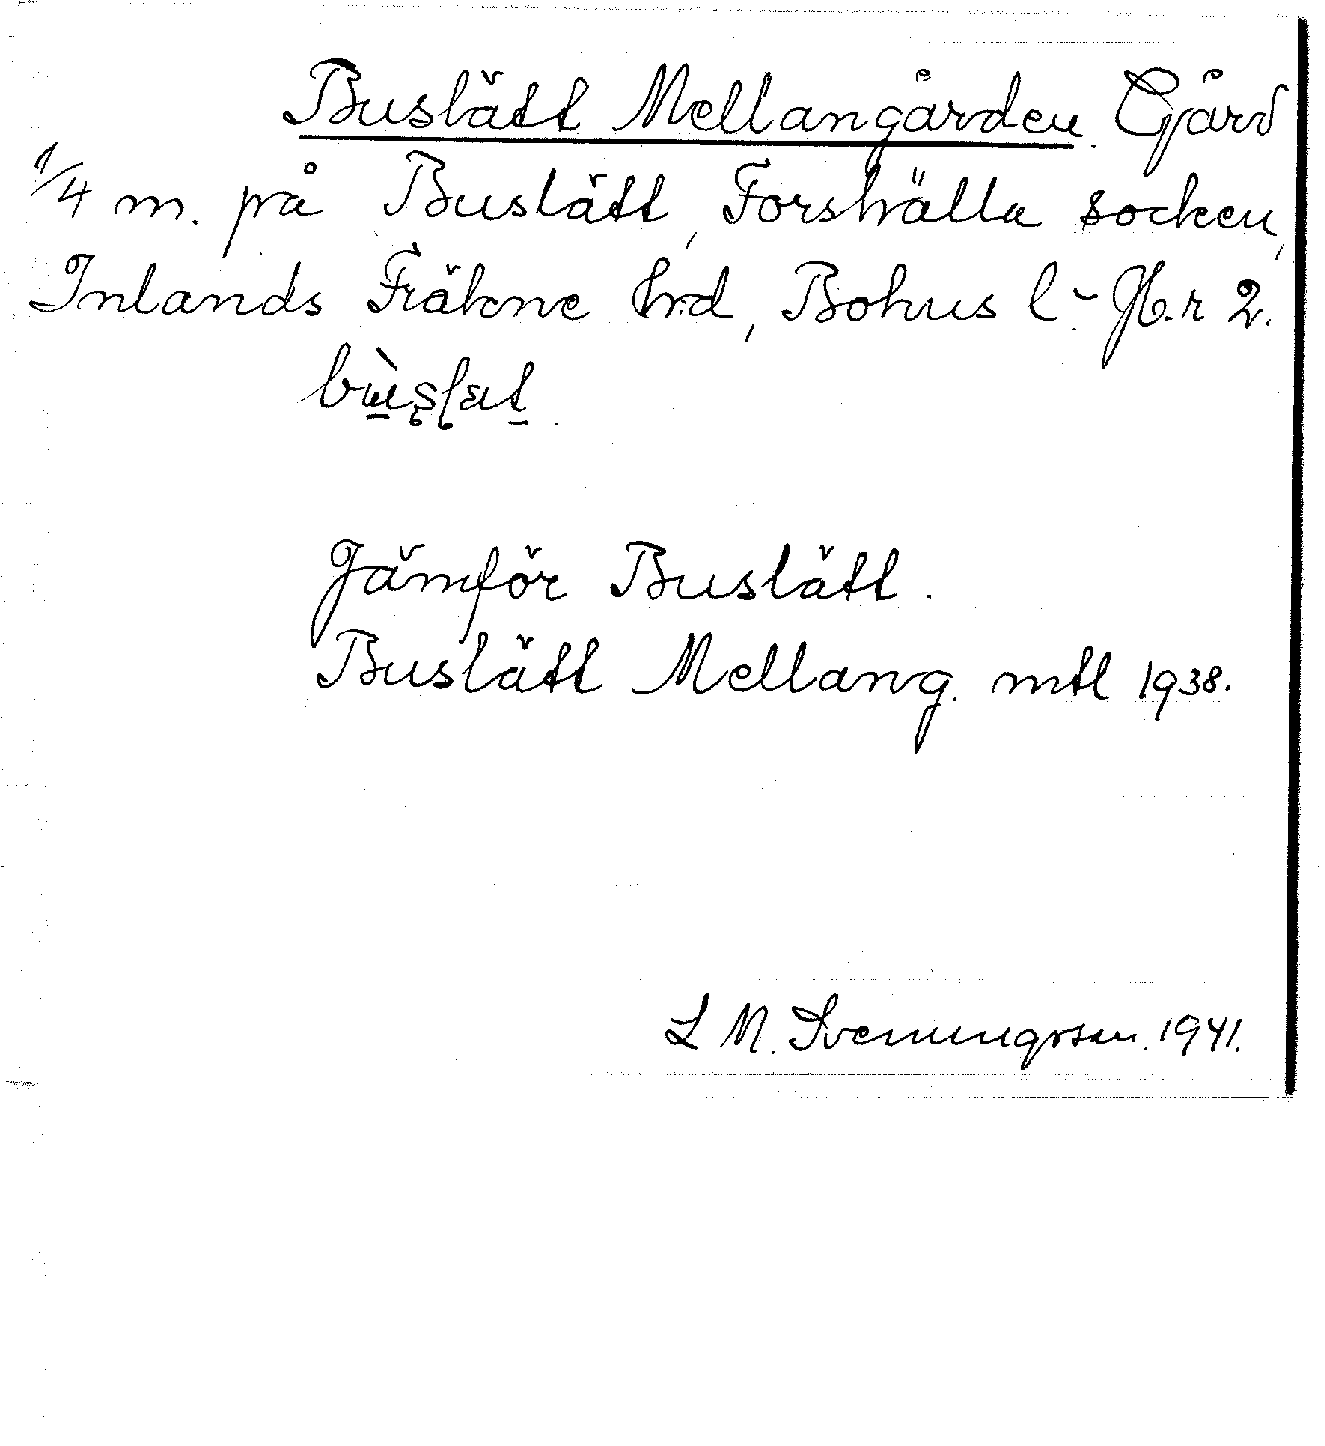 Buslätt Mellangården. Gård
1/4 m. på Buslätt, Forshälla socken,
Inlands Fräkne hrd, Bohus l. Jb. r 2.
Jämför Buslätt.
Buslätt Mellang. mtl 1938.
L M. Svenungsson. 1941.